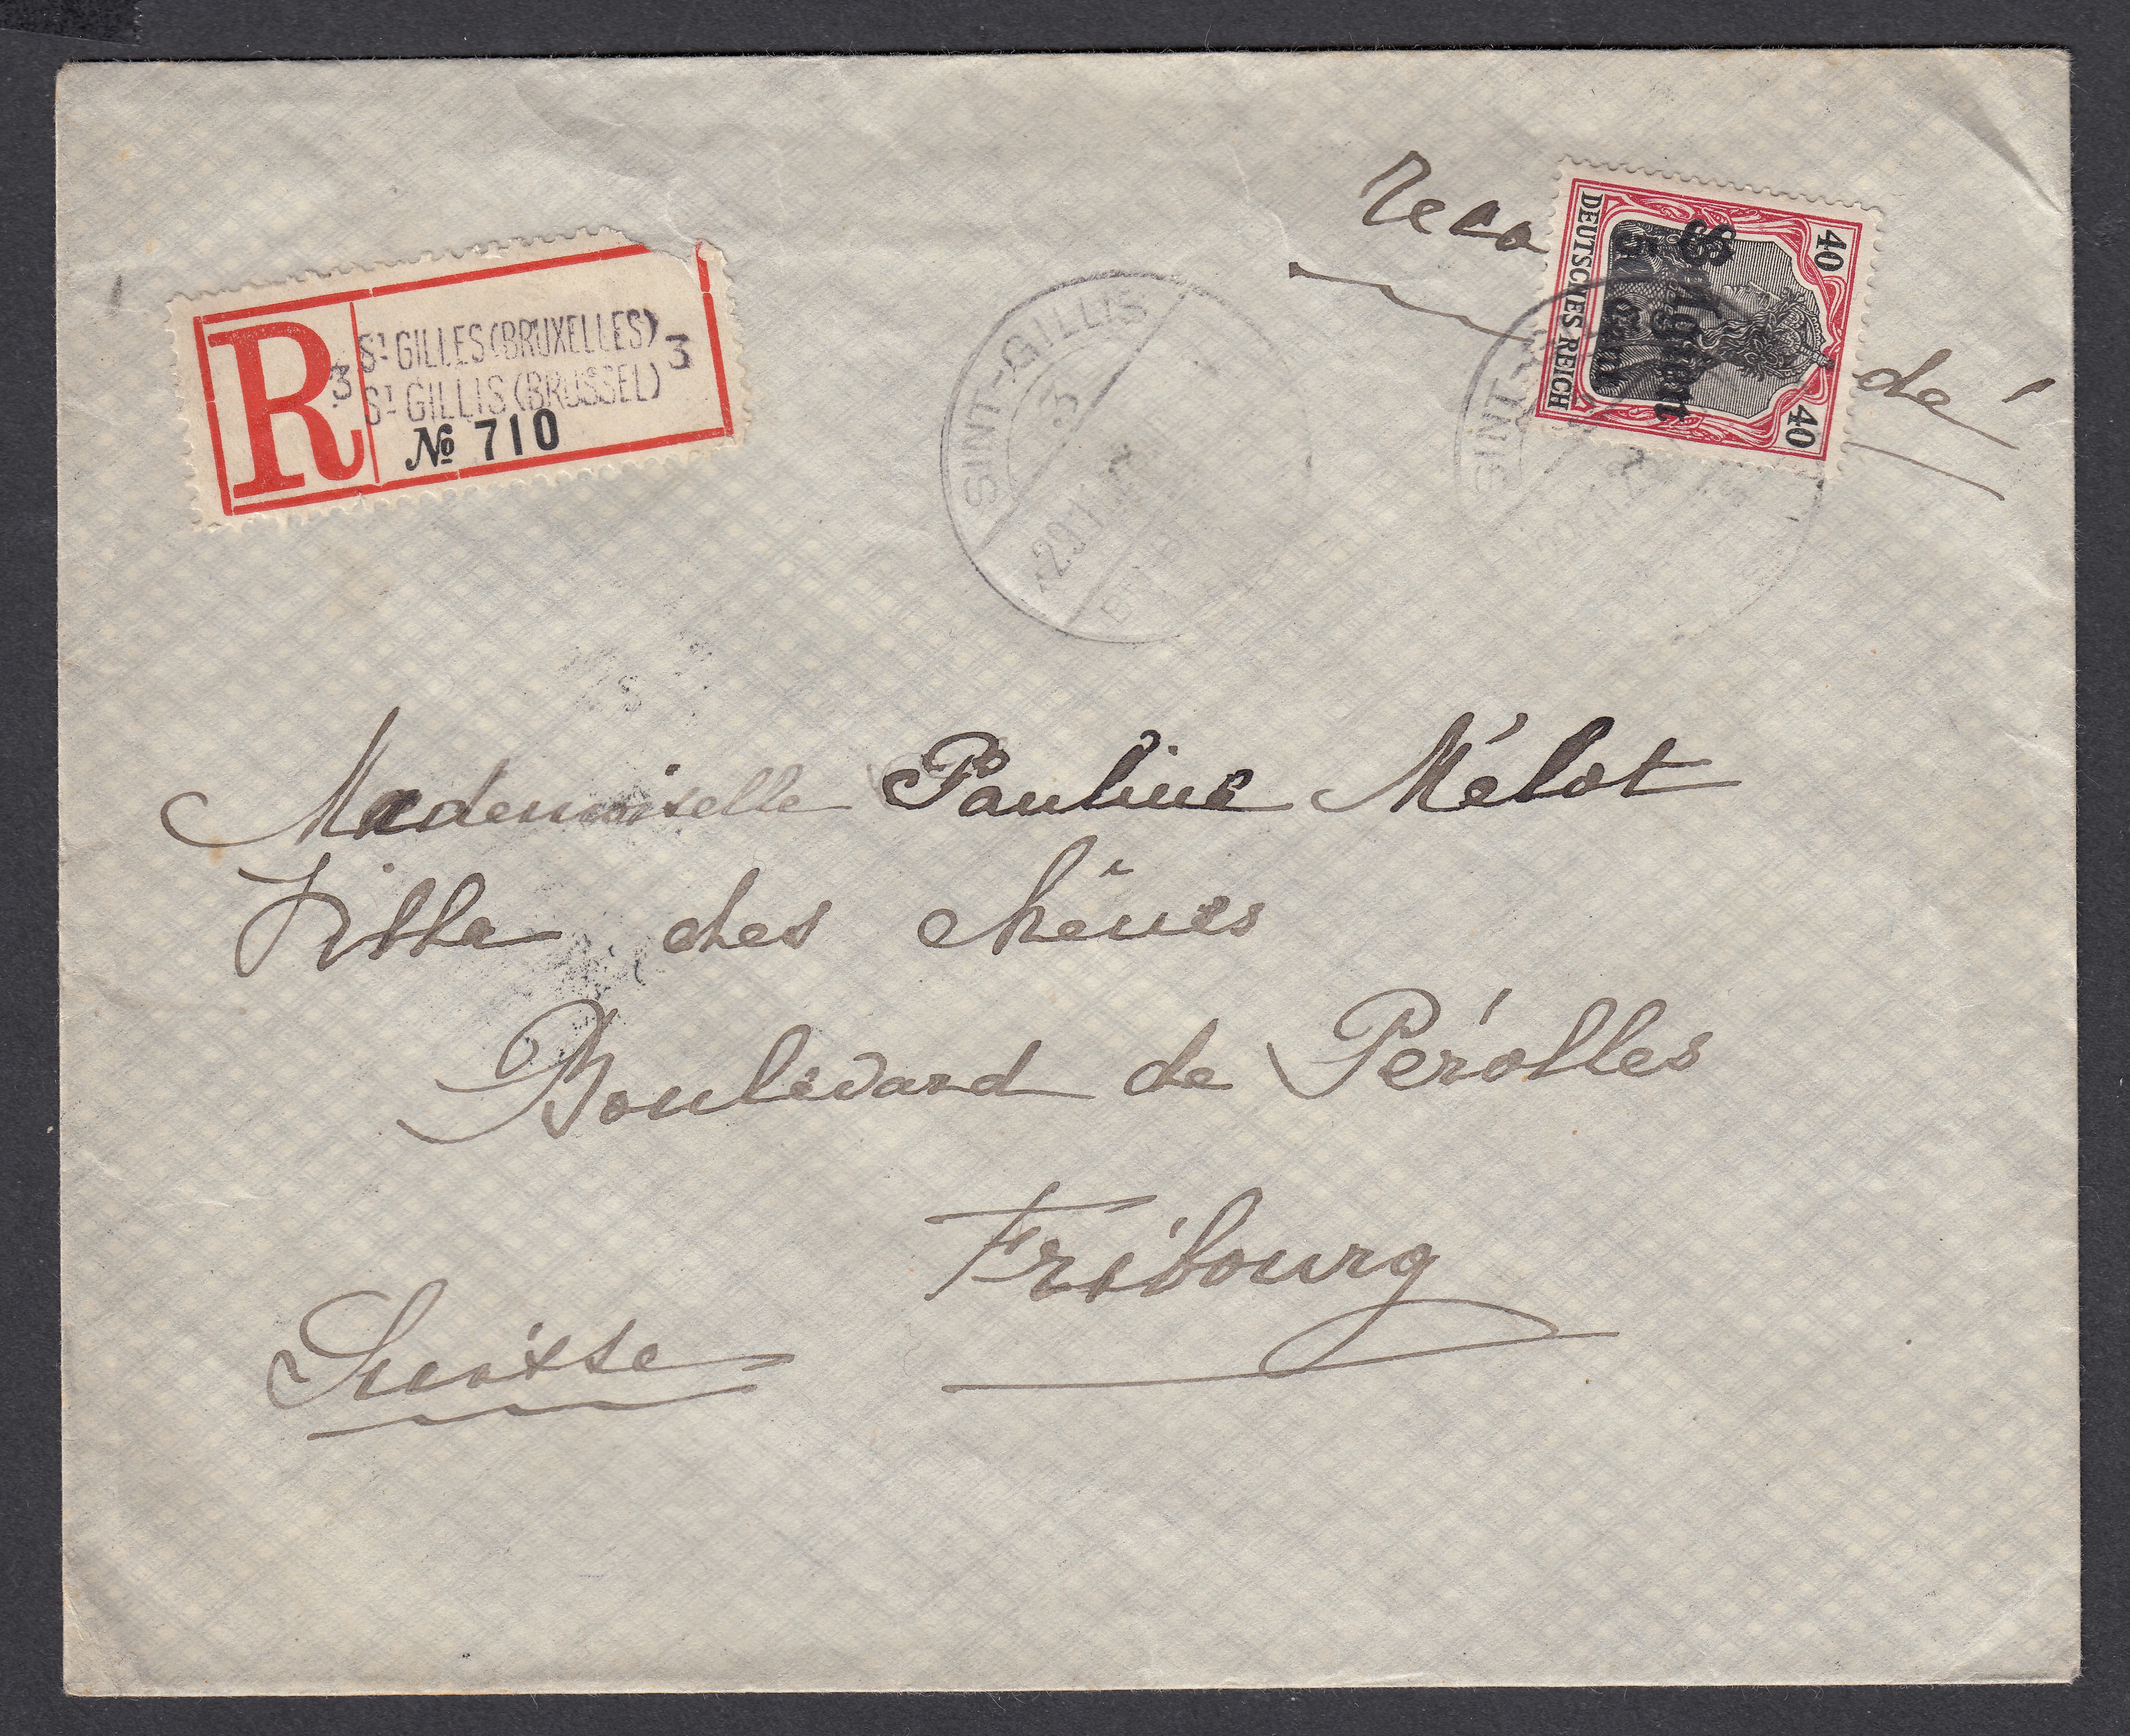 reco
dé
R
3 St GILLES (BRUXELLES) 3
St GILLIS (BRUSSEL)
№ 710
SINT-GILLIS
3
DEUTSCHES REICH
40
40
SINT-
Mademoiselle Pauline Mélot
Villa des chênes
Boulevard de Pérolles
Fribourg
Suisse